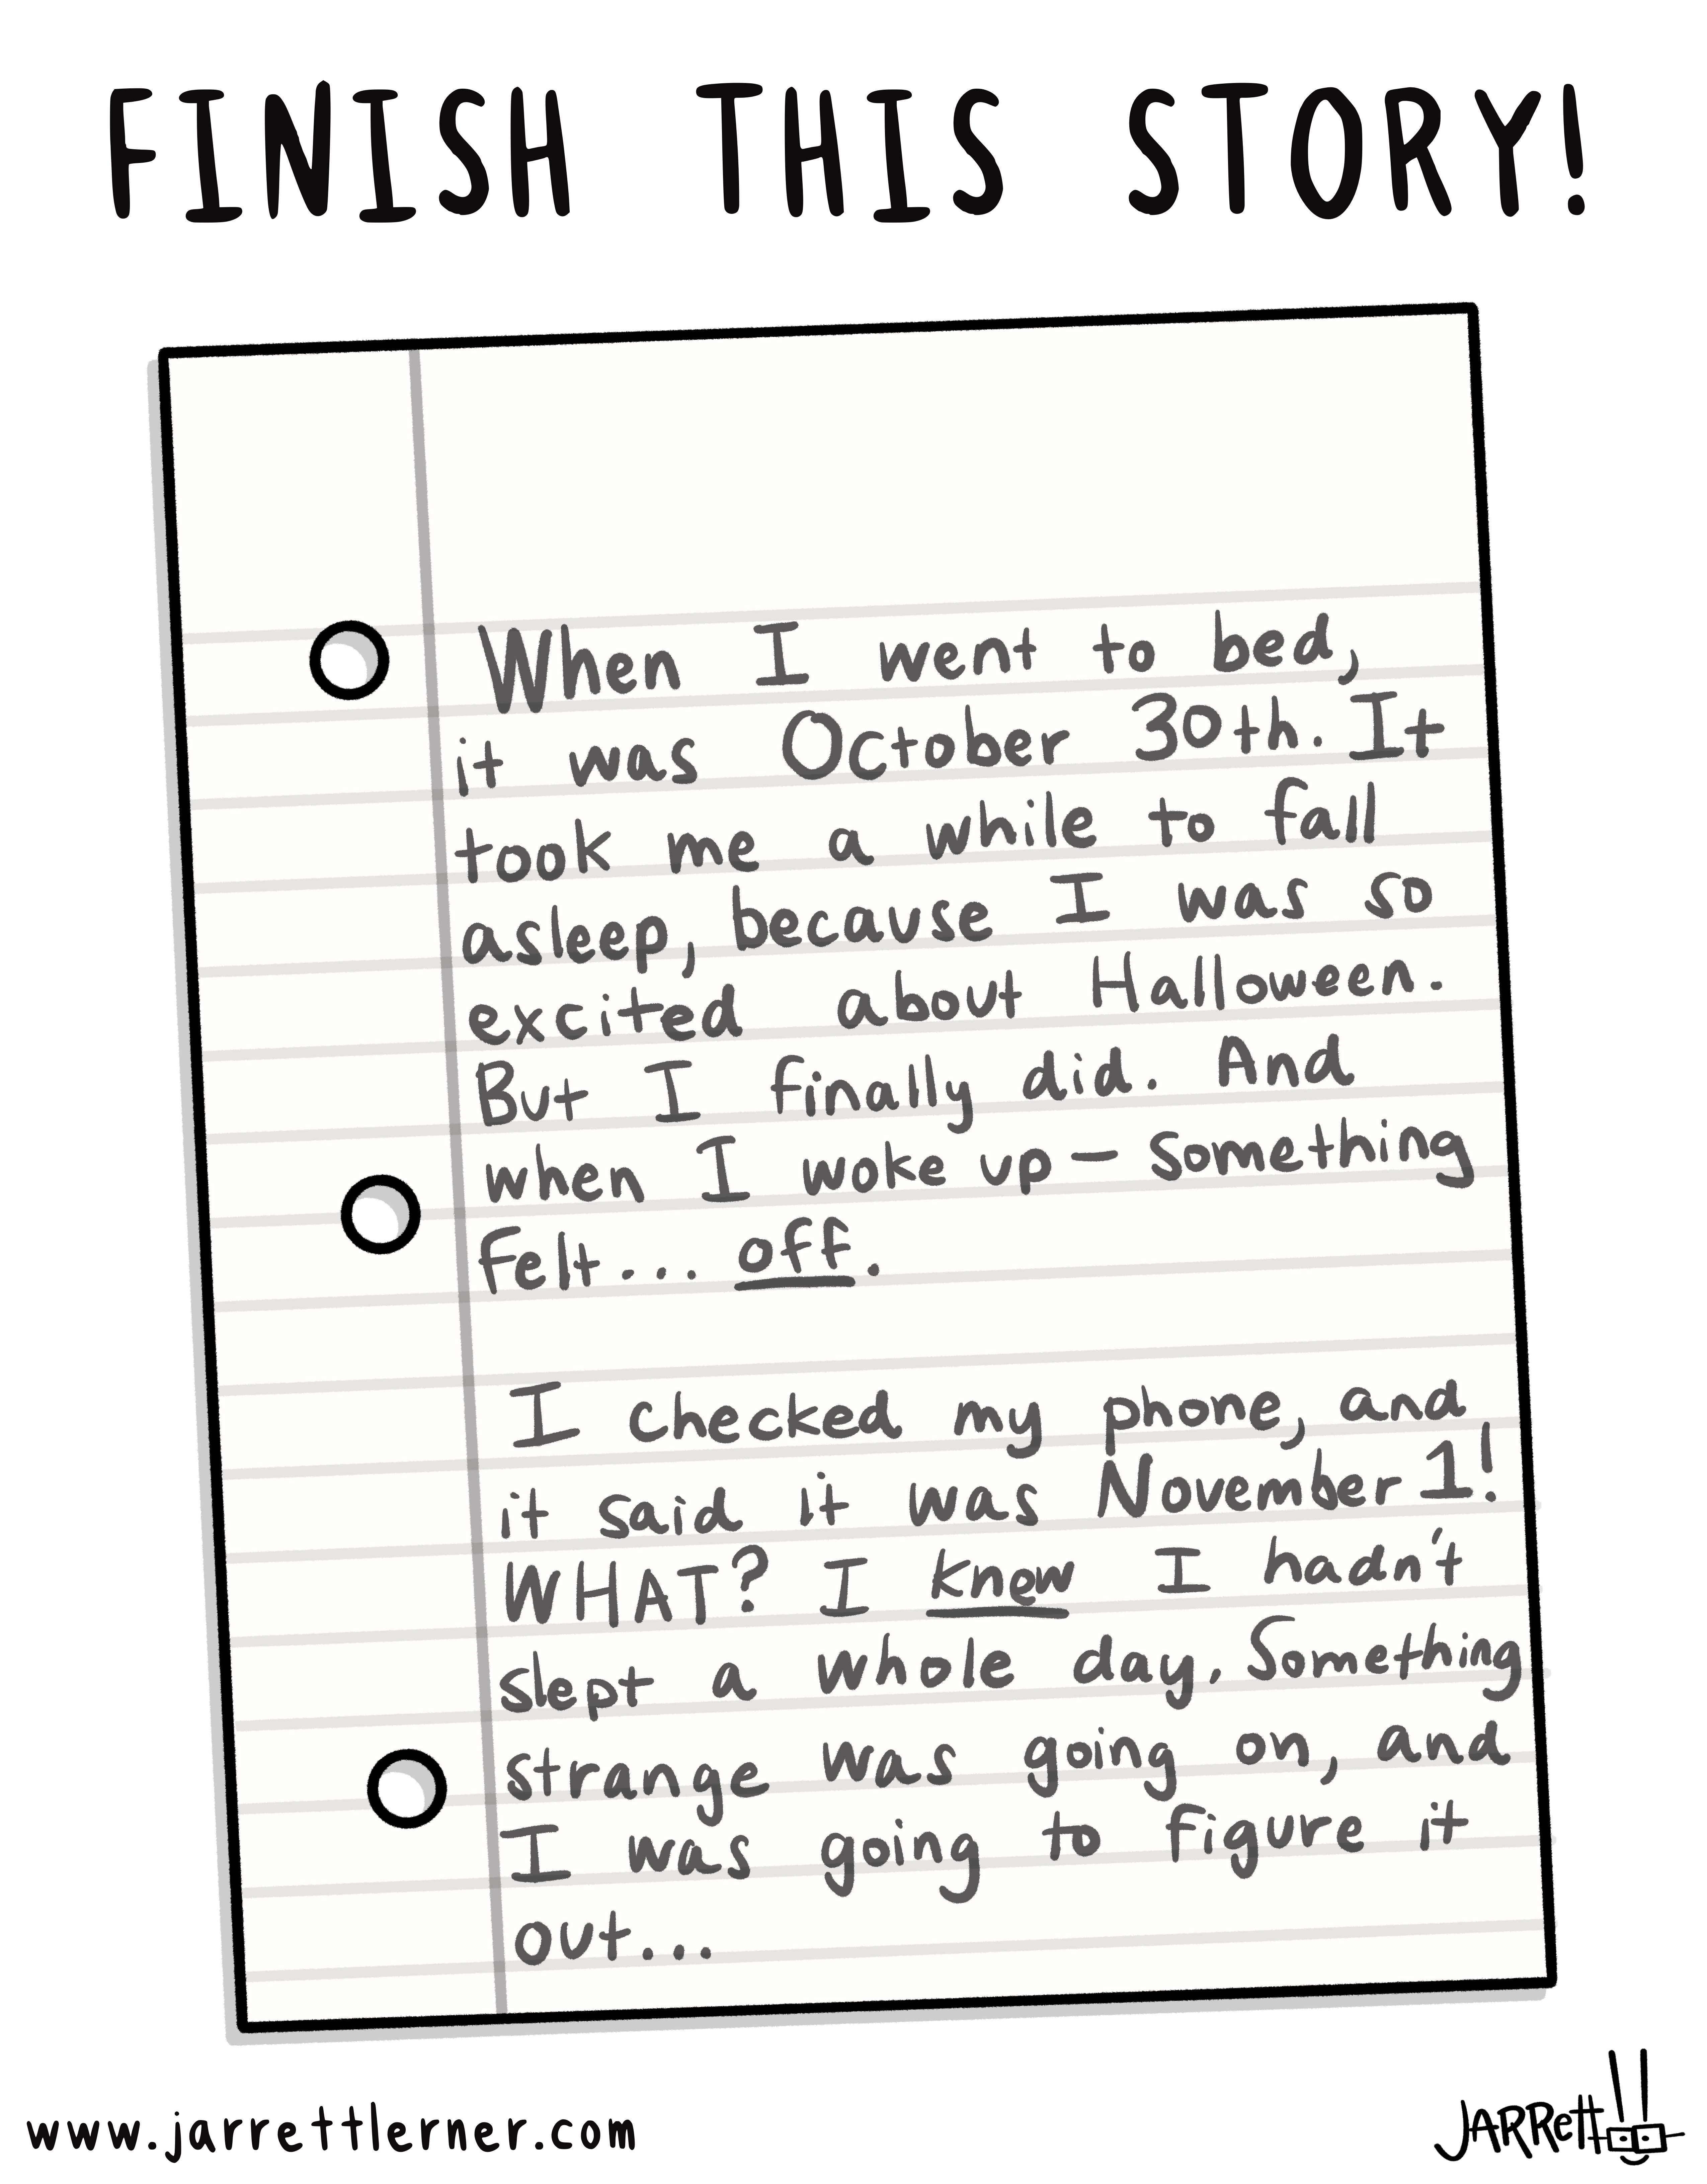 FINISH THIS STORY!
When I went to bed,
it was October 30th. It
took me a while to fall
asleep, because I was so
excited about Halloween.
But I finally did. And
when I woke up – something
felt... off.
I checked my phone, and
it said it was November 1!
WHAT? I knew I hadn't
slept a whole day. Something
strange was going on, and
I was going to figure it
out...
www.jarrettlerner.com
JARRett!!